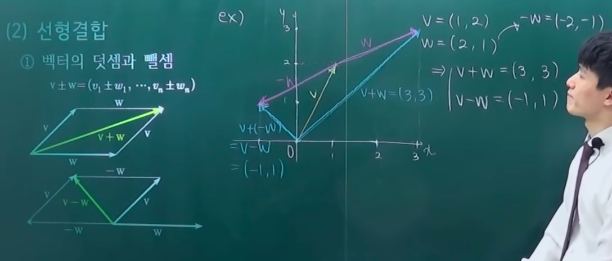 (2) 선형결합
① 벡터의 덧셈과 뺄셈
v±w=(v₁±w₁, ⋯, vₙ±wₙ)
w
v
v
v+w
w
-w
v
v-w
v
-w
w
ex)
y
3
2
1
0
1
2
3
x
w
-w
v
v+w=(3,3)
v+(-w)
=v-w
=(-1,1)
v=(1,2)
w=(2,1)
-w=(-2,-1)
⇒ v+w=(3,3)
v-w=(-1,1)